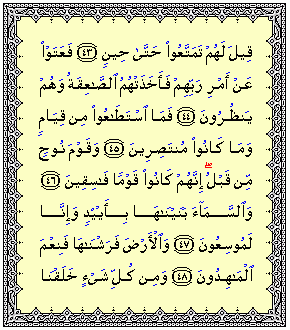 قِيلَ لَهُمْ تَمَتَّعُوا۟ حَتَّىٰ حِينٍ ﴿٤٣﴾ فَعَتَوْا۟
عَنْ أَمْرِ رَبِّهِمْ فَأَخَذَتْهُمُ ٱلصَّـٰعِقَةُ وَهُمْ
يَنظُرُونَ ﴿٤٤﴾ فَمَا ٱسْتَطَـٰعُوا۟ مِن قِيَامٍ
وَمَا كَانُوا۟ مُنتَصِرِينَ ﴿٤٥﴾ وَقَوْمَ نُوحٍ
مِّن قَبْلُ ۖ إِنَّهُمْ كَانُوا۟ قَوْمًا فَـٰسِقِينَ ﴿٤٦﴾
وَٱلسَّمَآءَ بَنَيْنَـٰهَا بِأَيْي۟دٍ وَإِنَّا
لَمُوسِعُونَ ﴿٤٧﴾ وَٱلْأَرْضَ فَرَشْنَـٰهَا فَنِعْمَ
ٱلْمَـٰهِدُونَ ﴿٤٨﴾ وَمِن كُلِّ شَىْءٍ خَلَقْنَا